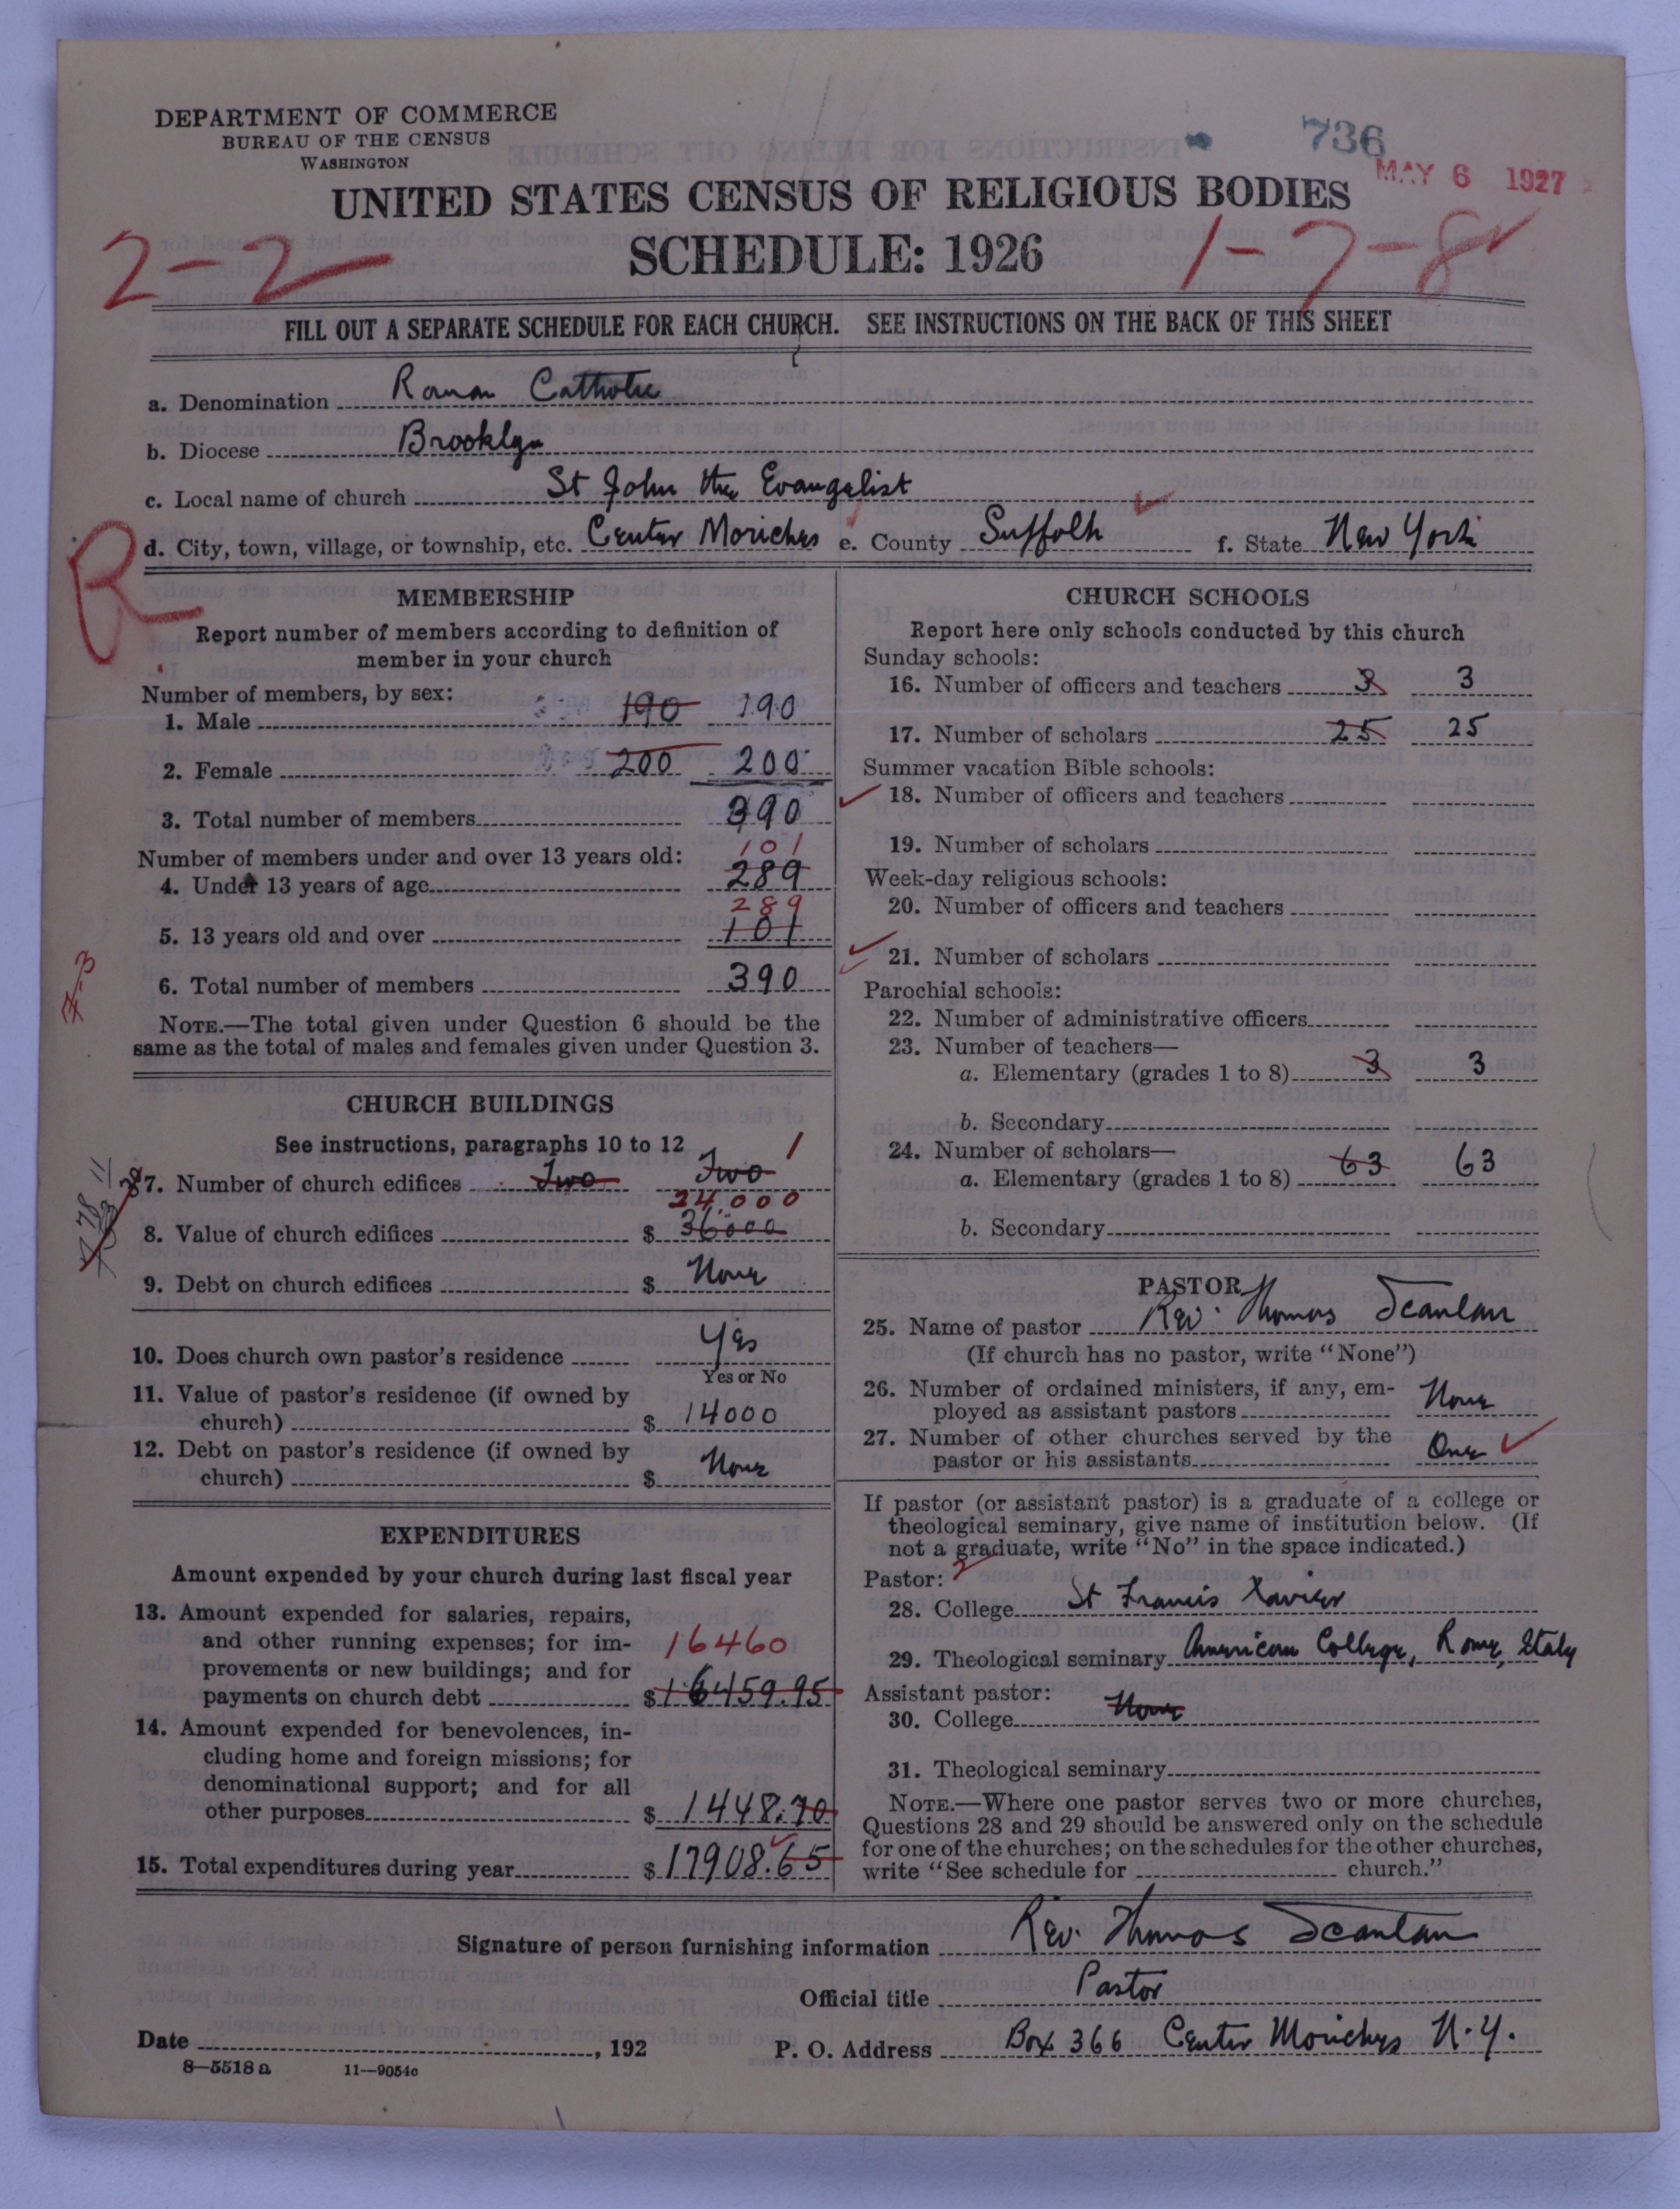 DEPARTMENT OF COMMERCE
BUREAU OF THE CENSUS
WASHINGTON
736
MAY 6 1927
UNITED STATES CENSUS OF RELIGIOUS BODIES
SCHEDULE: 1926
2-2
1-7-8
FILL OUT A SEPARATE SCHEDULE FOR EACH CHURCH. SEE INSTRUCTIONS ON THE BACK OF THIS SHEET
a. Denomination Roman Catholic
b. Diocese Brooklyn
c. Local name of church St John the Evangelist
d. City, town, village, or township, etc. Center Moriches e. County Suffolk f. State New York
R
MEMBERSHIP
Report number of members according to definition of
member in your church
Number of members, by sex:
1. Male 190 190
2. Female 200 200
3. Total number of members 390
Number of members under and over 13 years old:
101
4. Under 13 years of age 289
289
5. 13 years old and over 101
6. Total number of members 390
NOTE.—The total given under Question 6 should be the
same as the total of males and females given under Question 3.
CHURCH BUILDINGS
See instructions, paragraphs 10 to 12
1
7. Number of church edifices Two Two
24,000
8. Value of church edifices $ 36000
9. Debt on church edifices $ None
10. Does church own pastor's residence Yes
Yes or No
11. Value of pastor's residence (if owned by
church) $ 14000
12. Debt on pastor's residence (if owned by
church) $ None
EXPENDITURES
Amount expended by your church during last fiscal year
13. Amount expended for salaries, repairs,
and other running expenses; for im-
16460
provements or new buildings; and for
payments on church debt $ 16459.95
14. Amount expended for benevolences, in-
cluding home and foreign missions; for
denominational support; and for all
other purposes $ 1448.70
15. Total expenditures during year $ 17908.65
CHURCH SCHOOLS
Report here only schools conducted by this church
Sunday schools:
16. Number of officers and teachers 3 3
17. Number of scholars 25 25
Summer vacation Bible schools:
18. Number of officers and teachers
19. Number of scholars
Week-day religious schools:
20. Number of officers and teachers
21. Number of scholars
Parochial schools:
22. Number of administrative officers
23. Number of teachers—
a. Elementary (grades 1 to 8) 3 3
b. Secondary
24. Number of scholars—
a. Elementary (grades 1 to 8) 63 63
b. Secondary
PASTOR
25. Name of pastor Rev. Thomas Scanlan
(If church has no pastor, write "None")
26. Number of ordained ministers, if any, em-
ployed as assistant pastors None
27. Number of other churches served by the
pastor or his assistants One
If pastor (or assistant pastor) is a graduate of a college or
theological seminary, give name of institution below. (If
not a graduate, write "No" in the space indicated.)
Pastor: 2
28. College St Francis Xavier
29. Theological seminary American College, Rome, Italy
Assistant pastor:
30. College None
31. Theological seminary
NOTE.—Where one pastor serves two or more churches,
Questions 28 and 29 should be answered only on the schedule
for one of the churches; on the schedules for the other churches,
write "See schedule for church."
Signature of person furnishing information Rev. Thomas Scanlan
Official title Pastor
Date , 192
P. O. Address Box 366 Center Moriches N.Y.
8—5518 a 11—9054c